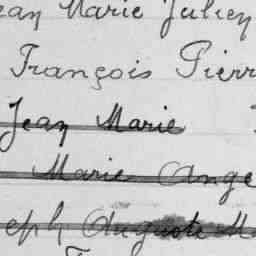 ean Marie Julien
François Pierr
Jean Marie
Marie Ange
eph Auguste M